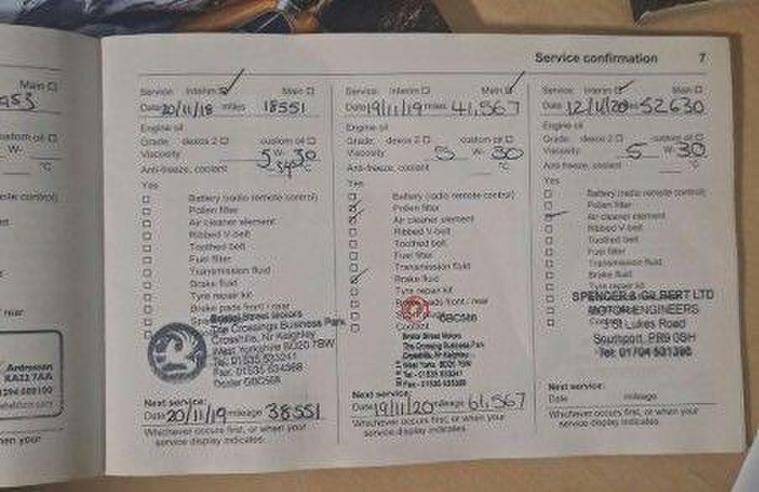 Service confirmation 7
Main
custom oil
W-
°C
Ardrossan
KA22 7AA
Service: Interim Main
Date 20/11/18 miles 18551
Engine oil
Grade: dexos 2 custom oil
Viscosity 5 W- 30
Anti-freeze, coolant °C
Yes
Battery (radio remote control)
Pollen filter
Air cleaner element
Ribbed V-belt
Toothed belt
Fuel filter
Transmission fluid
Brake fluid
Tyre repair kit
Brake pads front / rear
Bristol Street Motors
The Crossings Business Park
Crosshills, Nr Keighley
West Yorkshire BD20 7BW
Tel: 01535 633241
Fax: 01535 634368
Dealer GBC568
Next service:
Date 20/11/19 mileage 38551
Whichever occurs first, or when your
service display indicates.
Service: Interim Main
Date 19/11/19 miles 41,567
Engine oil
Grade: dexos 2 custom oil
Viscosity 5 W- 30
Anti-freeze, coolant °C
Yes
Battery (radio remote control)
Pollen filter
Air cleaner element
Ribbed V-belt
Toothed belt
Fuel filter
Transmission fluid
Brake fluid
Tyre repair kit
Brake pads front / rear
Coolant
Bristol Street Motors
The Crossing Business Park
Crosshills, Nr Keighley
Next service:
Date 19/11/20 mileage 61,567
Whichever occurs first, or when your
service display indicates.
Service: Interim Main
Date 52630
Engine oil
Grade: dexos 2 custom oil
Viscosity 5 W- 30
Anti-freeze, coolant °C
Yes
Battery (radio remote control)
Pollen filter
Air cleaner element
Ribbed V-belt
Toothed belt
Fuel filter
Transmission fluid
Brake fluid
Tyre repair kit
SPENCER & GILBERT LTD
MOTOR ENGINEERS
St Lukes Road
Southport, PR9 0SH
Tel: 01704 531398
Next service:
Date mileage
Whichever occurs first, or when your
service display indicates.